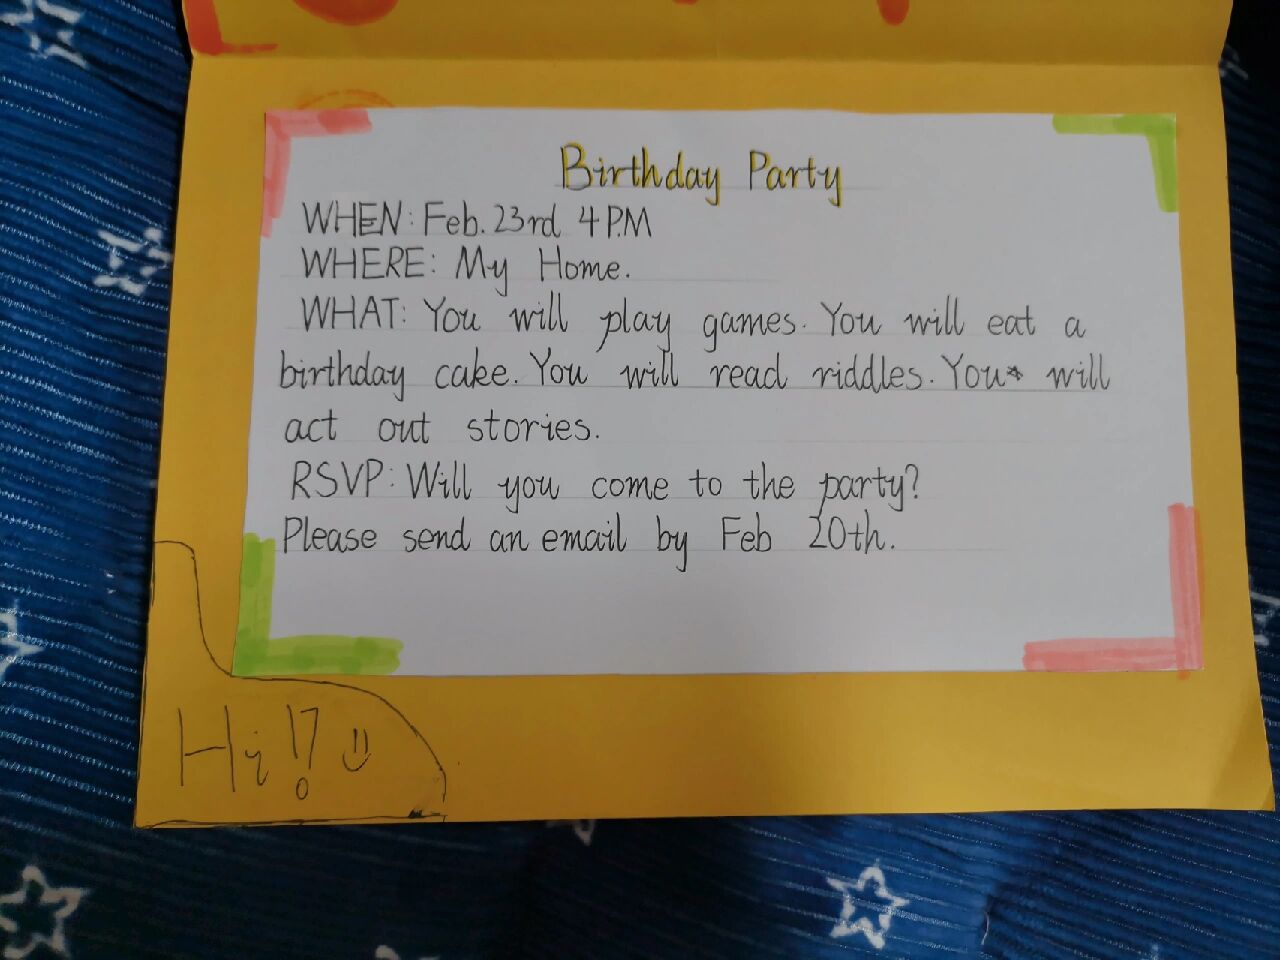 Birthday Party
WHEN: Feb. 23rd 4 P.M
WHERE: My Home.
WHAT: You will play games. You will eat a
birthday cake. You will read riddles. You will
act out stories.
RSVP: Will you come to the party?
Please send an email by Feb 20th.
Hi!?